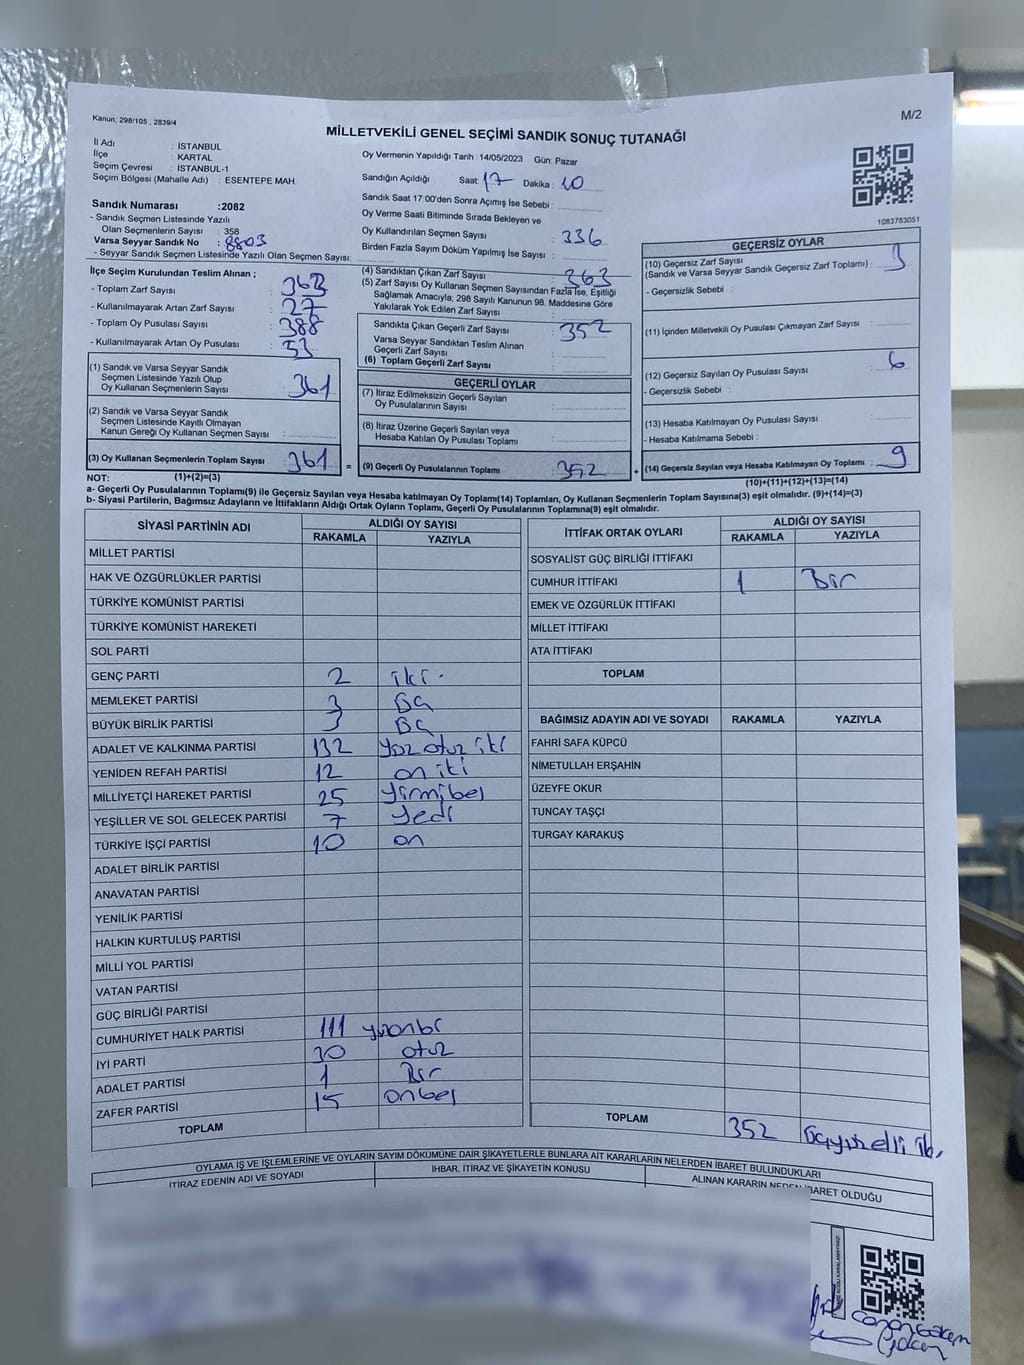 Kanun, 298/105 , 2839/4
M/2
MİLLETVEKİLİ GENEL SEÇİMİ SANDIK SONUÇ TUTANAĞI
İl Adı : İSTANBUL
İlçe : KARTAL
Seçim Çevresi : İSTANBUL-1
Seçim Bölgesi (Mahalle Adı) : ESENTEPE MAH.
Sandık Numarası :2082
- Sandık Seçmen Listesinde Yazılı
Olan Seçmenlerin Sayısı : 358
Varsa Seyyar Sandık No : 8803
- Seyyar Sandık Seçmen Listesinde Yazılı Olan Seçmen Sayısı:
Oy Vermenin Yapıldığı Tarih : 14/05/2023 Gün: Pazar
Sandığın Açıldığı Saat: 17 Dakika : 10
Sandık Saat 17:00'den Sonra Açımış İse Sebebi :
Oy Verme Saati Bitiminde Sırada Bekleyen ve
Oy Kullandırılan Seçmen Sayısı : 336
Birden Fazla Sayım Döküm Yapılmış İse Sayısı :
1083783051
İlçe Seçim Kurulundan Teslim Alınan ;
- Toplam Zarf Sayısı : 363
- Kullanılmayarak Artan Zarf Sayısı : 27
- Toplam Oy Pusulası Sayısı : 388
- Kullanılmayarak Artan Oy Pusulası : 53
(1) Sandık ve Varsa Seyyar Sandık
Seçmen Listesinde Yazılı Olup
Oy Kullanan Seçmenlerin Sayısı : 361
(2) Sandık ve Varsa Seyyar Sandık
Seçmen Listesinde Kayıtlı Olmayan
Kanun Gereği Oy Kullanan Seçmen Sayısı :
(3) Oy Kullanan Seçmenlerin Toplam Sayısı : 361
(1)+(2)=(3)
(4) Sandıktan Çıkan Zarf Sayısı : 363
(5) Zarf Sayısı Oy Kullanan Seçmen Sayısından Fazla İse, Eşitliği
Sağlamak Amacıyla; 298 Sayılı Kanunun 98. Maddesine Göre
Yakılarak Yok Edilen Zarf Sayısı :
Sandıkta Çıkan Geçerli Zarf Sayısı : 352
Varsa Seyyar Sandıktan Teslim Alınan
Geçerli Zarf Sayısı :
(6) Toplam Geçerli Zarf Sayısı :
GEÇERLİ OYLAR
(7) İtiraz Edilmeksizin Geçerli Sayılan
Oy Pusulalarının Sayısı :
(8) İtiraz Üzerine Geçerli Sayılan veya
Hesaba Katılan Oy Pusulası Toplamı :
= (9) Geçerli Oy Pusulalarının Toplamı : 352
GEÇERSİZ OYLAR
(10) Geçersiz Zarf Sayısı
(Sandık ve Varsa Seyyar Sandık Geçersiz Zarf Toplamı) : 3
- Geçersizlik Sebebi :
(11) İçinden Milletvekili Oy Pusulası Çıkmayan Zarf Sayısı :
(12) Geçersiz Sayılan Oy Pusulası Sayısı : 6
- Geçersizlik Sebebi :
(13) Hesaba Katılmayan Oy Pusulası Sayısı :
- Hesaba Katılmama Sebebi :
+ (14) Geçersiz Sayılan veya Hesaba Katılmayan Oy Toplamı : 9
(10)+(11)+(12)+(13)=(14)
NOT:
a- Geçerli Oy Pusulaların Toplamı(9) ile Geçersiz Sayılan veya Hesaba katılmayan Oy Toplamı(14) Toplamları, Oy Kullanan Seçmenlerin Toplam Sayısına(3) eşit olmalıdır. (9)+(14)=(3)
b- Siyasi Partilerin, Bağımsız Adayların ve İttifakların Aldığı Ortak Oyların Toplamı, Geçerli Oy Pusulalarının Toplamına(9) eşit olmalıdır.
SİYASİ PARTİNİN ADI ALDIĞI OY SAYISI
RAKAMLA YAZIYLA
MİLLET PARTİSİ
HAK VE ÖZGÜRLÜKLER PARTİSİ
TÜRKİYE KOMÜNİST PARTİSİ
TÜRKİYE KOMÜNİST HAREKETİ
SOL PARTİ
GENÇ PARTİ 2 iki
MEMLEKET PARTİSİ 3 üç
BÜYÜK BİRLİK PARTİSİ 3 üç
ADALET VE KALKINMA PARTİSİ 132 yüz otuz iki
YENİDEN REFAH PARTİSİ 12 on iki
MİLLİYETÇİ HAREKET PARTİSİ 25 yirmibeş
YEŞİLLER VE SOL GELECEK PARTİSİ 7 yedi
TÜRKİYE İŞÇİ PARTİSİ 10 on
ADALET BİRLİK PARTİSİ
ANAVATAN PARTİSİ
YENİLİK PARTİSİ
HALKIN KURTULUŞ PARTİSİ
MİLLİ YOL PARTİSİ
VATAN PARTİSİ
GÜÇ BİRLİĞİ PARTİSİ
CUMHURİYET HALK PARTİSİ 111 yüzonbir
İYİ PARTİ 30 otuz
ADALET PARTİSİ 1 Bir
ZAFER PARTİSİ 15 onbeş
TOPLAM
İTTİFAK ORTAK OYLARI ALDIĞI OY SAYISI
RAKAMLA YAZIYLA
SOSYALİST GÜÇ BİRLİĞİ İTTİFAKI
CUMHUR İTTİFAKI 1 Bir
EMEK VE ÖZGÜRLÜK İTTİFAKI
MİLLET İTTİFAKI
ATA İTTİFAKI
TOPLAM
BAĞIMSIZ ADAYIN ADI VE SOYADI RAKAMLA YAZIYLA
FAHRİ SAFA KÜPCÜ
NİMETULLAH ERŞAHİN
ÜZEYFE OKUR
TUNCAY TAŞÇI
TURGAY KARAKUŞ
TOPLAM 352 üçyüzelli iki
OYLAMA İŞ VE İŞLEMLERİNE VE OYLARIN SAYIM DÖKÜMÜNE DAİR ŞİKAYETLERLE BUNLARA AİT KARARLARIN NELERDEN İBARET BULUNDUKLARI
İTİRAZ EDENİN ADI VE SOYADI İHBAR, İTİRAZ VE ŞİKAYETİN KONUSU ALINAN KARARIN NEDEN İBARET OLDUĞU